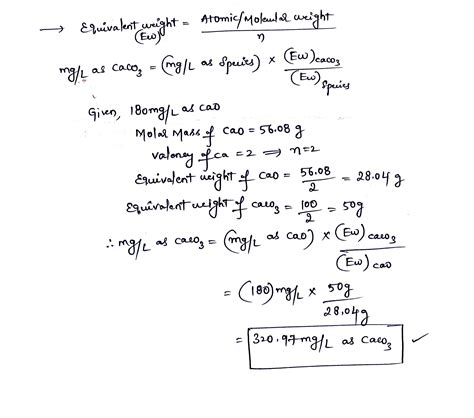 → Equivalent weight = Atomic/Molecular weight / n
(Ew)
mg/L as CaCO3 = (mg/L as Species) × (Ew)CaCO3 / (Ew)Species
Given, 180mg/L as CaO
Molar Mass of CaO = 56.08 g
Valency of Ca = 2 ⟹ n=2
Equivalent weight of CaO = 56.08/2 = 28.04 g
Equivalent weight of CaCO3 = 100/2 = 50g
∴ mg/L as CaCO3 = (mg/L as CaO) × (Ew)CaCO3 / (Ew)CaO
= (180) mg/L × 50g / 28.04g
= 320.97 mg/L as CaCO3 ✓